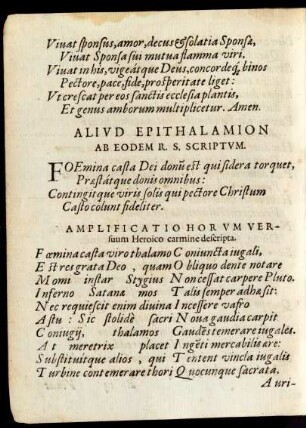 Viuat sponsus, amor, decus & solatia Sponsæ,
Viuat Sponsa sui mutua flamma viri.
Viuat in his, vigeátque Deus, concordeq́; binos
Pectore, pace, fide, prosperitate liget:
Vt crescat per eos sanctis ecclesia plantis,
Et genus amborum multiplicetur. Amen.
ALIVD EPITHALAMION
AB EODEM R. S. SCRIPTVM.
FOEmina casta Dei donũ est qui sidera torquet,
Præstátque donis omnibus:
Contingit que viris solis qui pectore Christum
Casto colunt fideliter.
AMPLIFICATIO HORVM VER-
suum Heroico carmine descripta.
Fœmina casta viro thalamo Coniuncta iugali,
Est res grata Deo, quam Obliquo dente notare
Momi instar Stygius Non cessat carpere Pluto.
Inferno Satana mos Talis semper adhæsit:
Nec requiescit enim diuina Incessere vafro
Astu: Sic stolidè sacri Noua gaudia carpit
Coniugij, thalamos Gaudẽs temerare iugales.
At meretrix placet Ingẽti mercabilis ære:
Substituitque alios, qui Tentent vincla iugalis
Turbine contemerare thori Quocunque sacrata.
Auri-